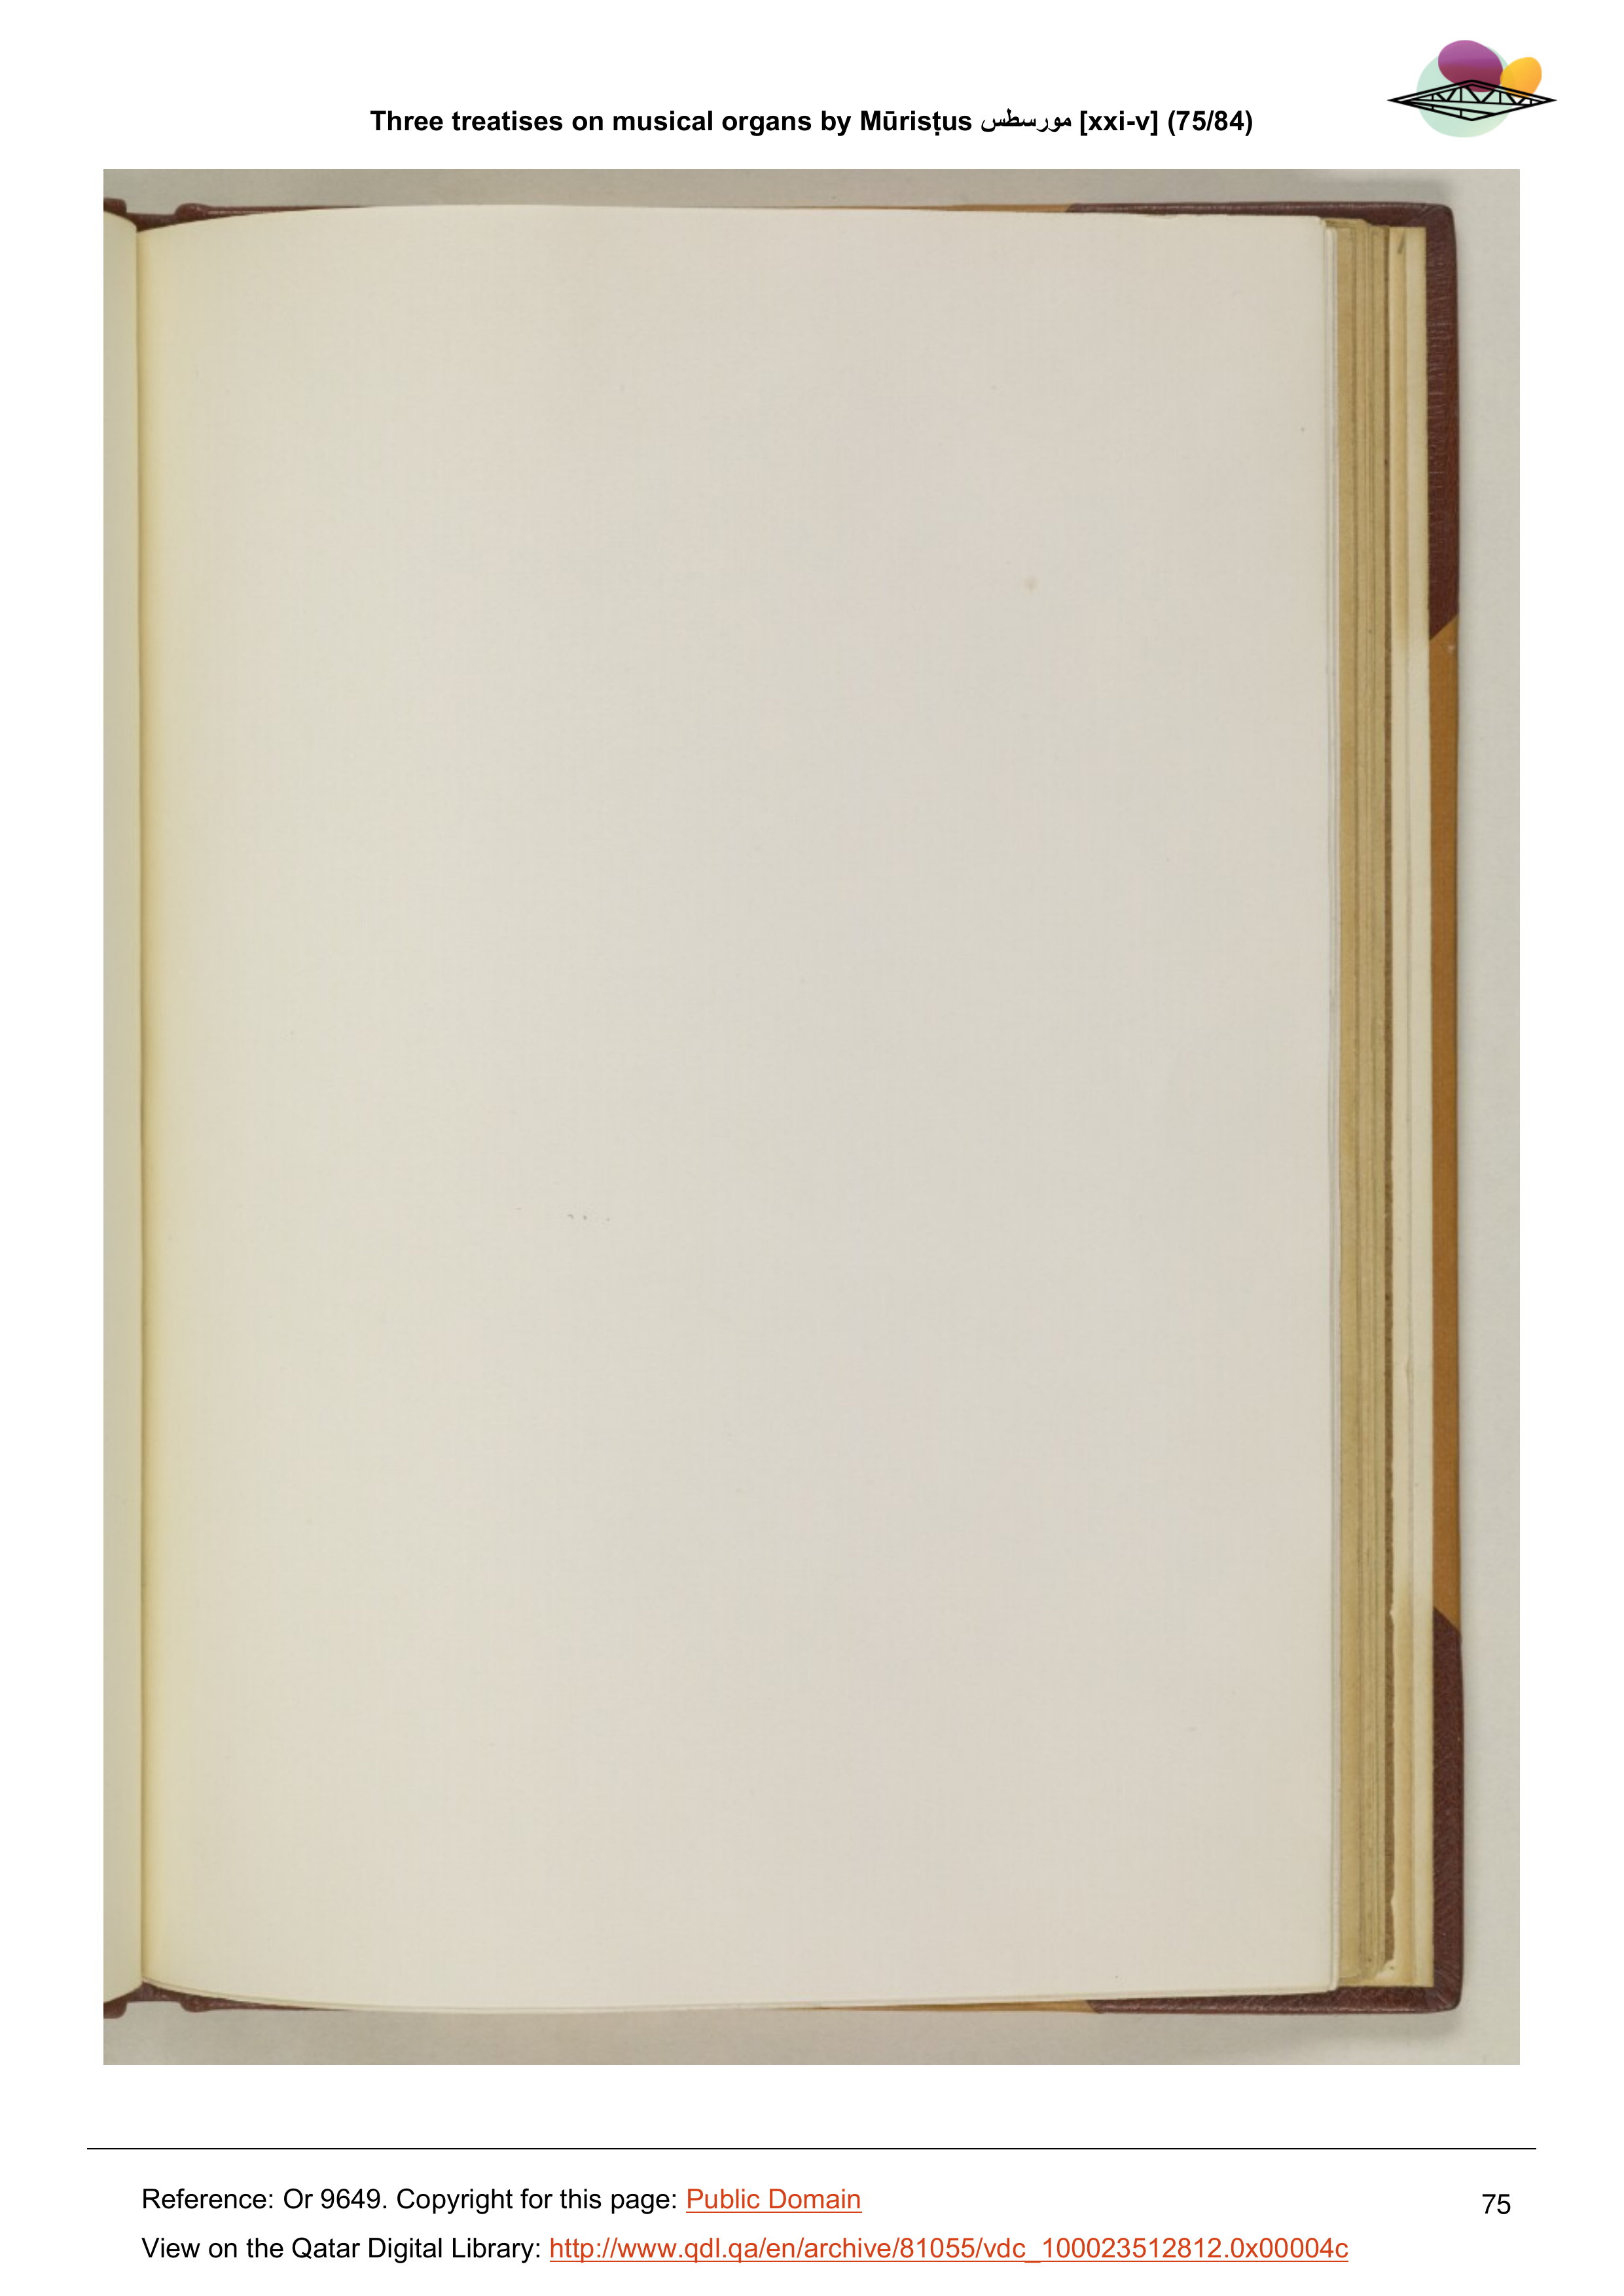 Three treatises on musical organs by Mūrisṭus مورسطس [xxi-v] (75/84)
Reference: Or 9649. Copyright for this page: Public Domain
75
View on the Qatar Digital Library: http://www.qdl.qa/en/archive/81055/vdc_100023512812.0x00004c